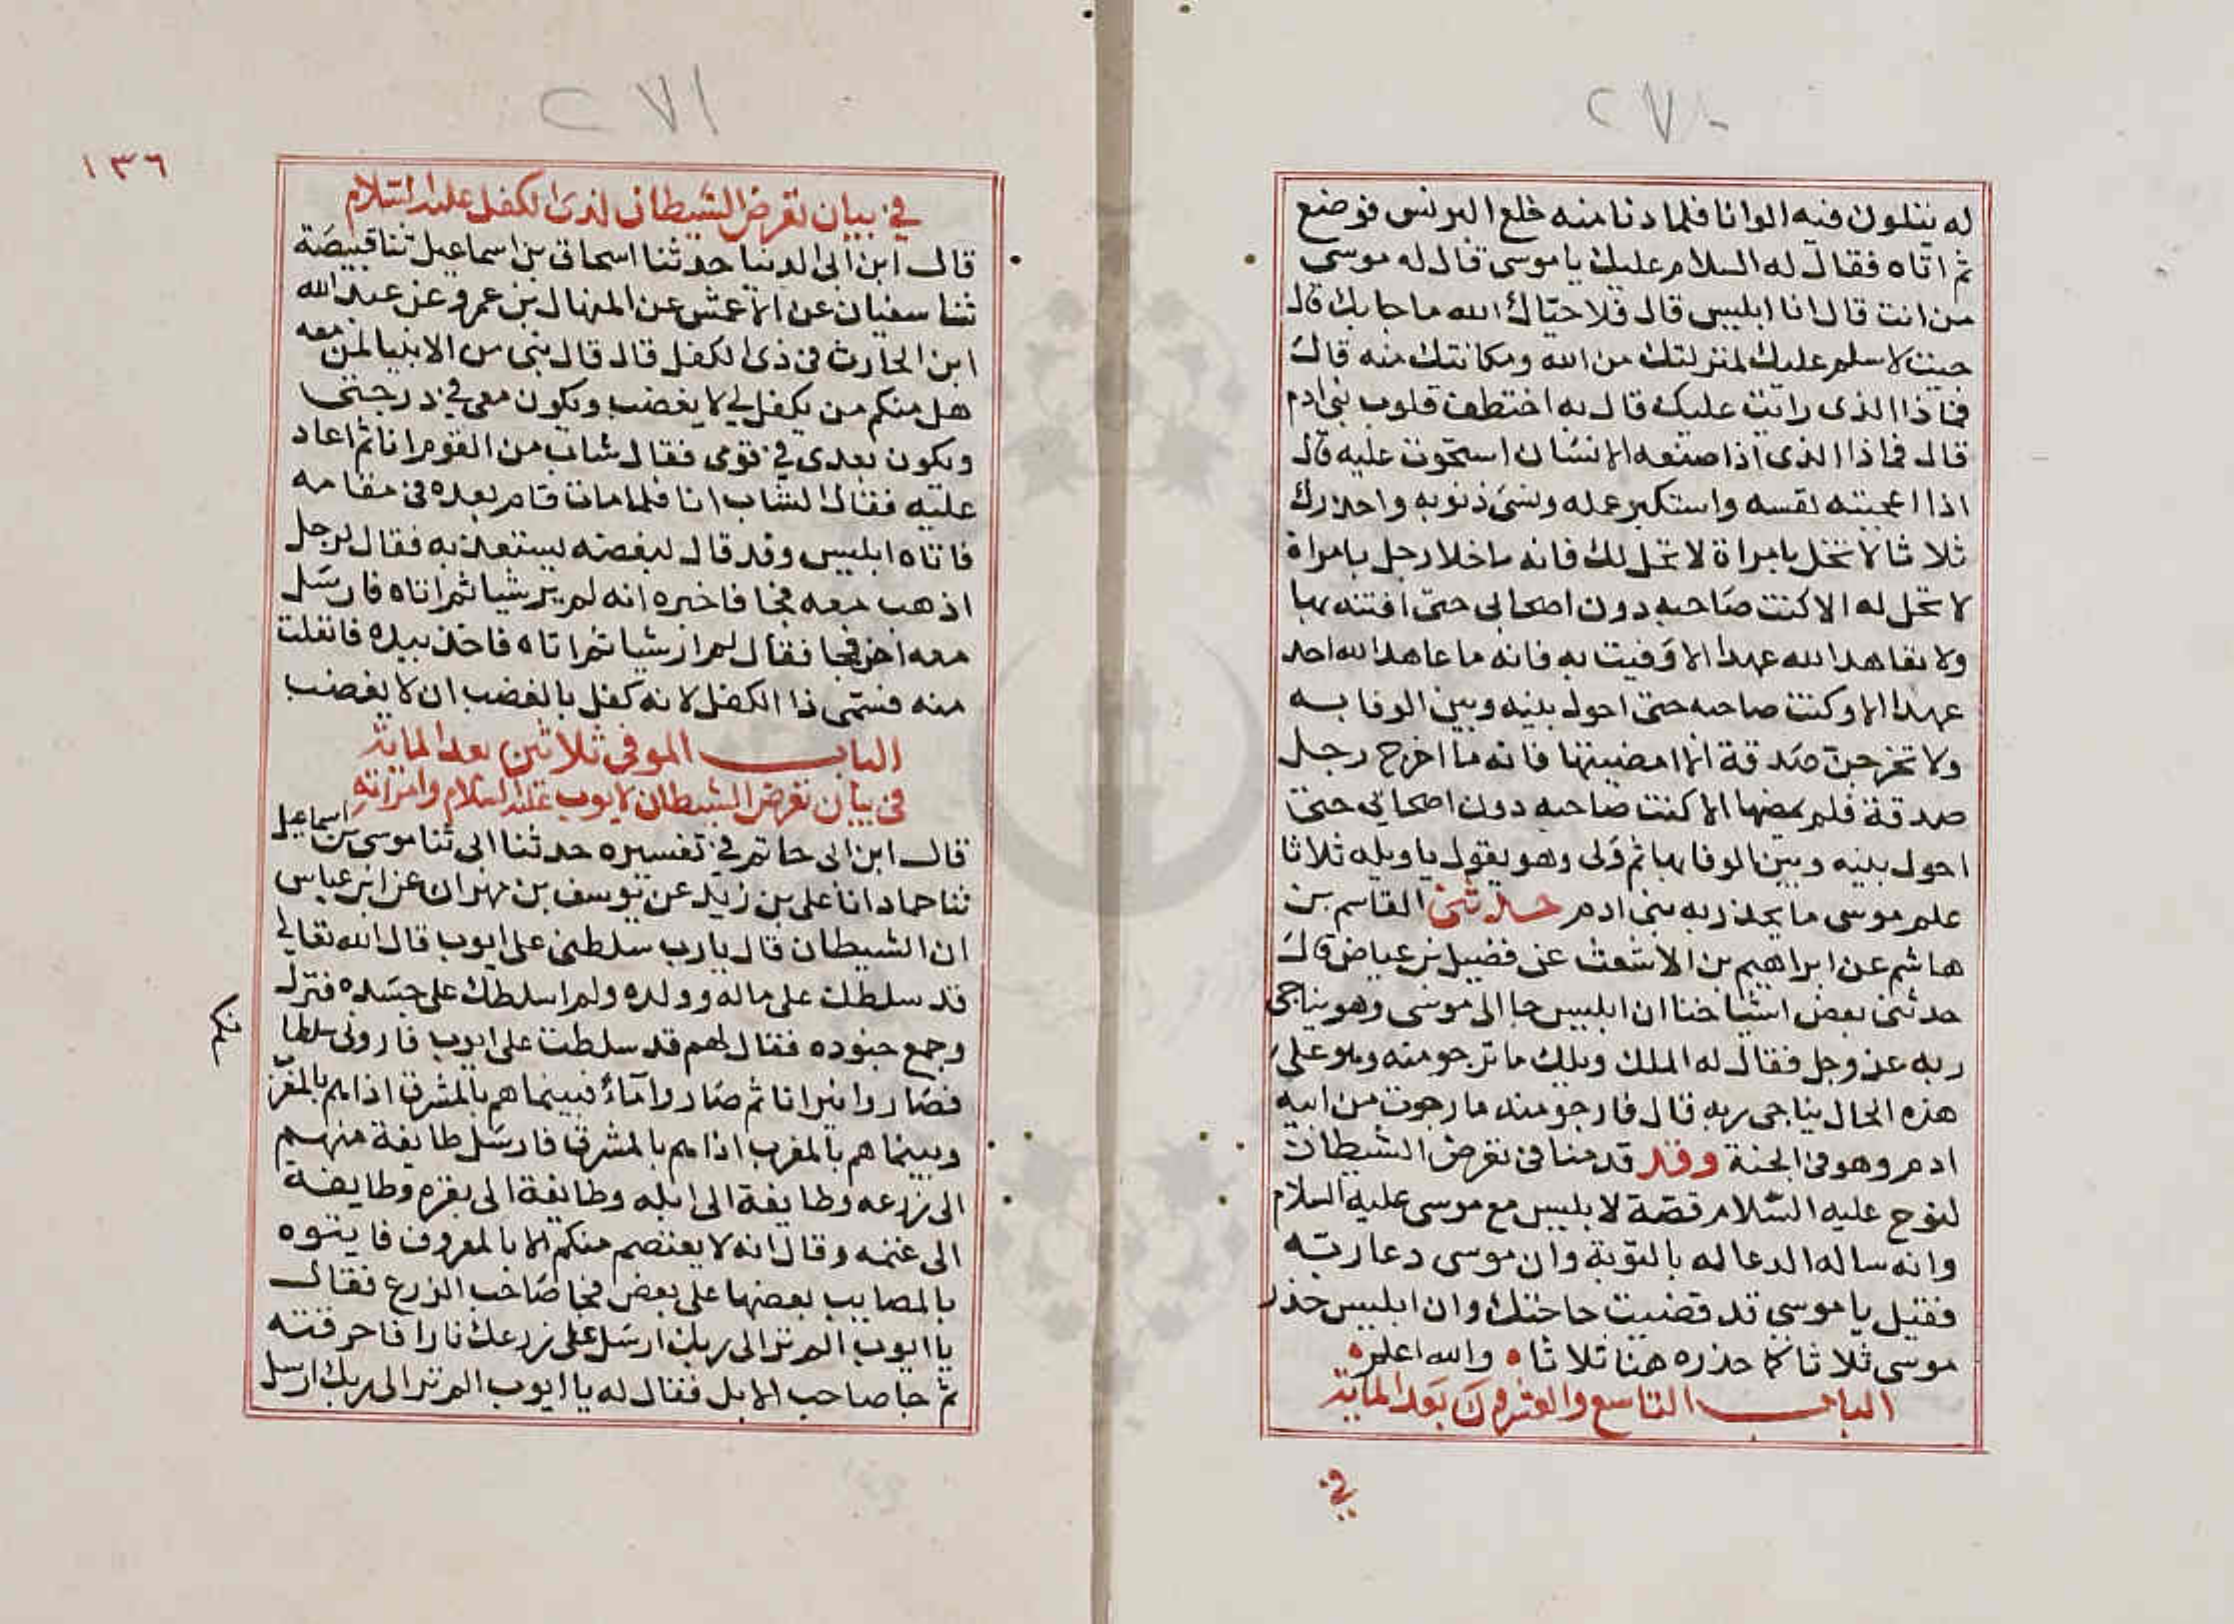 ٢٧٠
له يتلون فيه الوانا فلما دنا منه خلع البرنس فوضع
ثم اتاه فقال له السلام عليك يا موسى قال له موسى
من انت قال انا ابليس قال فلا حيّاك الله ما جا بك قال
جيت لاسلم عليك لمنزلتك من الله ومكانتك منه قال
فماذا الذى رايت عليك قال به اختطف قلوب بنى ادم
قال فماذا الذى اذا صنعه الانسان استحوت عليه قال
اذا اعجبته نفسه واستكبر عمله ونسى ذنوبه واحذرك
ثلاثا لا تخل بامراة لا تحل لك فانه ما خلا رجل بامراة
لا تحل له الا كنت صاحبه دون اصحابى حتى افتنه بها
ولا تعاهد الله عهدا الا وفيت به فانه ما عاهد الله احد
عهدا الا وكنت صاحبه حتى احول بينه وبين الوفا به
ولا تخرجن صدقة الا امضيتها فانه ما اخرج رجل
صدقة فلم يمضها الا كنت صاحبه دون اصحابي حتى
احول بينه وبين الوفا بها ثم ولى وهو يقول يا ويله ثلاثا
علم موسى ما يحذر به بنى ادم حدثنى القاسم بن
هاشم عن ابراهيم بن الاشعث عن فضيل بن عياض قال
حدثنى بعض اشياخنا ان ابليس جا الى موسى وهو يناجى
ربه عز وجل فقال له الملك ويلك ما ترجو منه وهو على
هذه الحال يناجى ربه قال فارجو منه ما رجوت من ابيه
ادم وهو فى الجنة وقد قدمنا فى تعرض الشيطان
لنوح عليه السلام قصة لابليس مع موسى عليه السلام
وانه ساله الدعا له بالتوبة وان موسى دعا ربه
فقيل يا موسى قد قضيت حاجتك وان ابليس حذر
موسى ثلاثا كما حذره هنا ثلاثا والله اعلم
الباب التاسع والعشرون بعد المائة
في
٢٧١
١٣٦
في بيان تعرض الشيطان لذى الكفل عليه السلام
قال ابن ابى الدنيا حدثنا اسحاق بن اسماعيل ثنا قبيصة
ثنا سفيان عن الاعمش عن المنهال بن عمرو عن عبد الله
ابن الحارث فى ذى الكفل قال قال نبى من الانبيا لمن معه
هل منكم من يكفل لي لا يغضب ويكون معى في درجتى
ويكون بعدى في قومى فقال شاب من القوم انا ثم اعاد
عليه فقال الشاب انا فلما مات قام بعده فى مقامه
فاتاه ابليس وقد قال ليغضبه يستعديه فقال لرجل
اذهب معه فجا فاخبره انه لم ير شيا ثم اتاه فارسل
معه اخر فجا فقال لم ار شيا ثم اتاه فاخذ بيده فانفلت
منه فسمّى ذا الكفل لانه كفل بالغضب ان لا يغضب
الباب الموفى ثلاثين بعد المائة
فى بيان تعرض الشيطان لايوب عليه السلام وامراته
قال ابن ابى حاتم في تفسيره حدثنا ابى ثنا موسى بن اسماعيل
ثنا حماد انا على بن زيد عن يوسف بن مهران عن ابن عباس
ان الشيطان قال يا رب سلطنى على ايوب قال الله تعالى
قد سلطتك على ماله وولده ولم اسلطك على جسده فنزل
وجمع جنوده فقال لهم قد سلطت على ايوب فارونى سلطا
نكم
فصاروا نيرانا ثم صاروا ماء فبينما هم بالمشرق اذا هم بالمغرب
وبينما هم بالمغرب اذا هم بالمشرق فارسل طايفة منهم
الى زرعه وطايفة الى ابله وطايفة الى بقره وطايفة
الى غنمه وقال انه لا يعتصم منكم الا بالمعروف فايتوه
بالمصايب بعضها على بعض فجا صاحب الزرع فقال
يا ايوب الم تر الى ربك ارسل على زرعك نارا فاحرقته
ثم جا صاحب الابل فقال له يا ايوب الم تر الى ربك ارسل